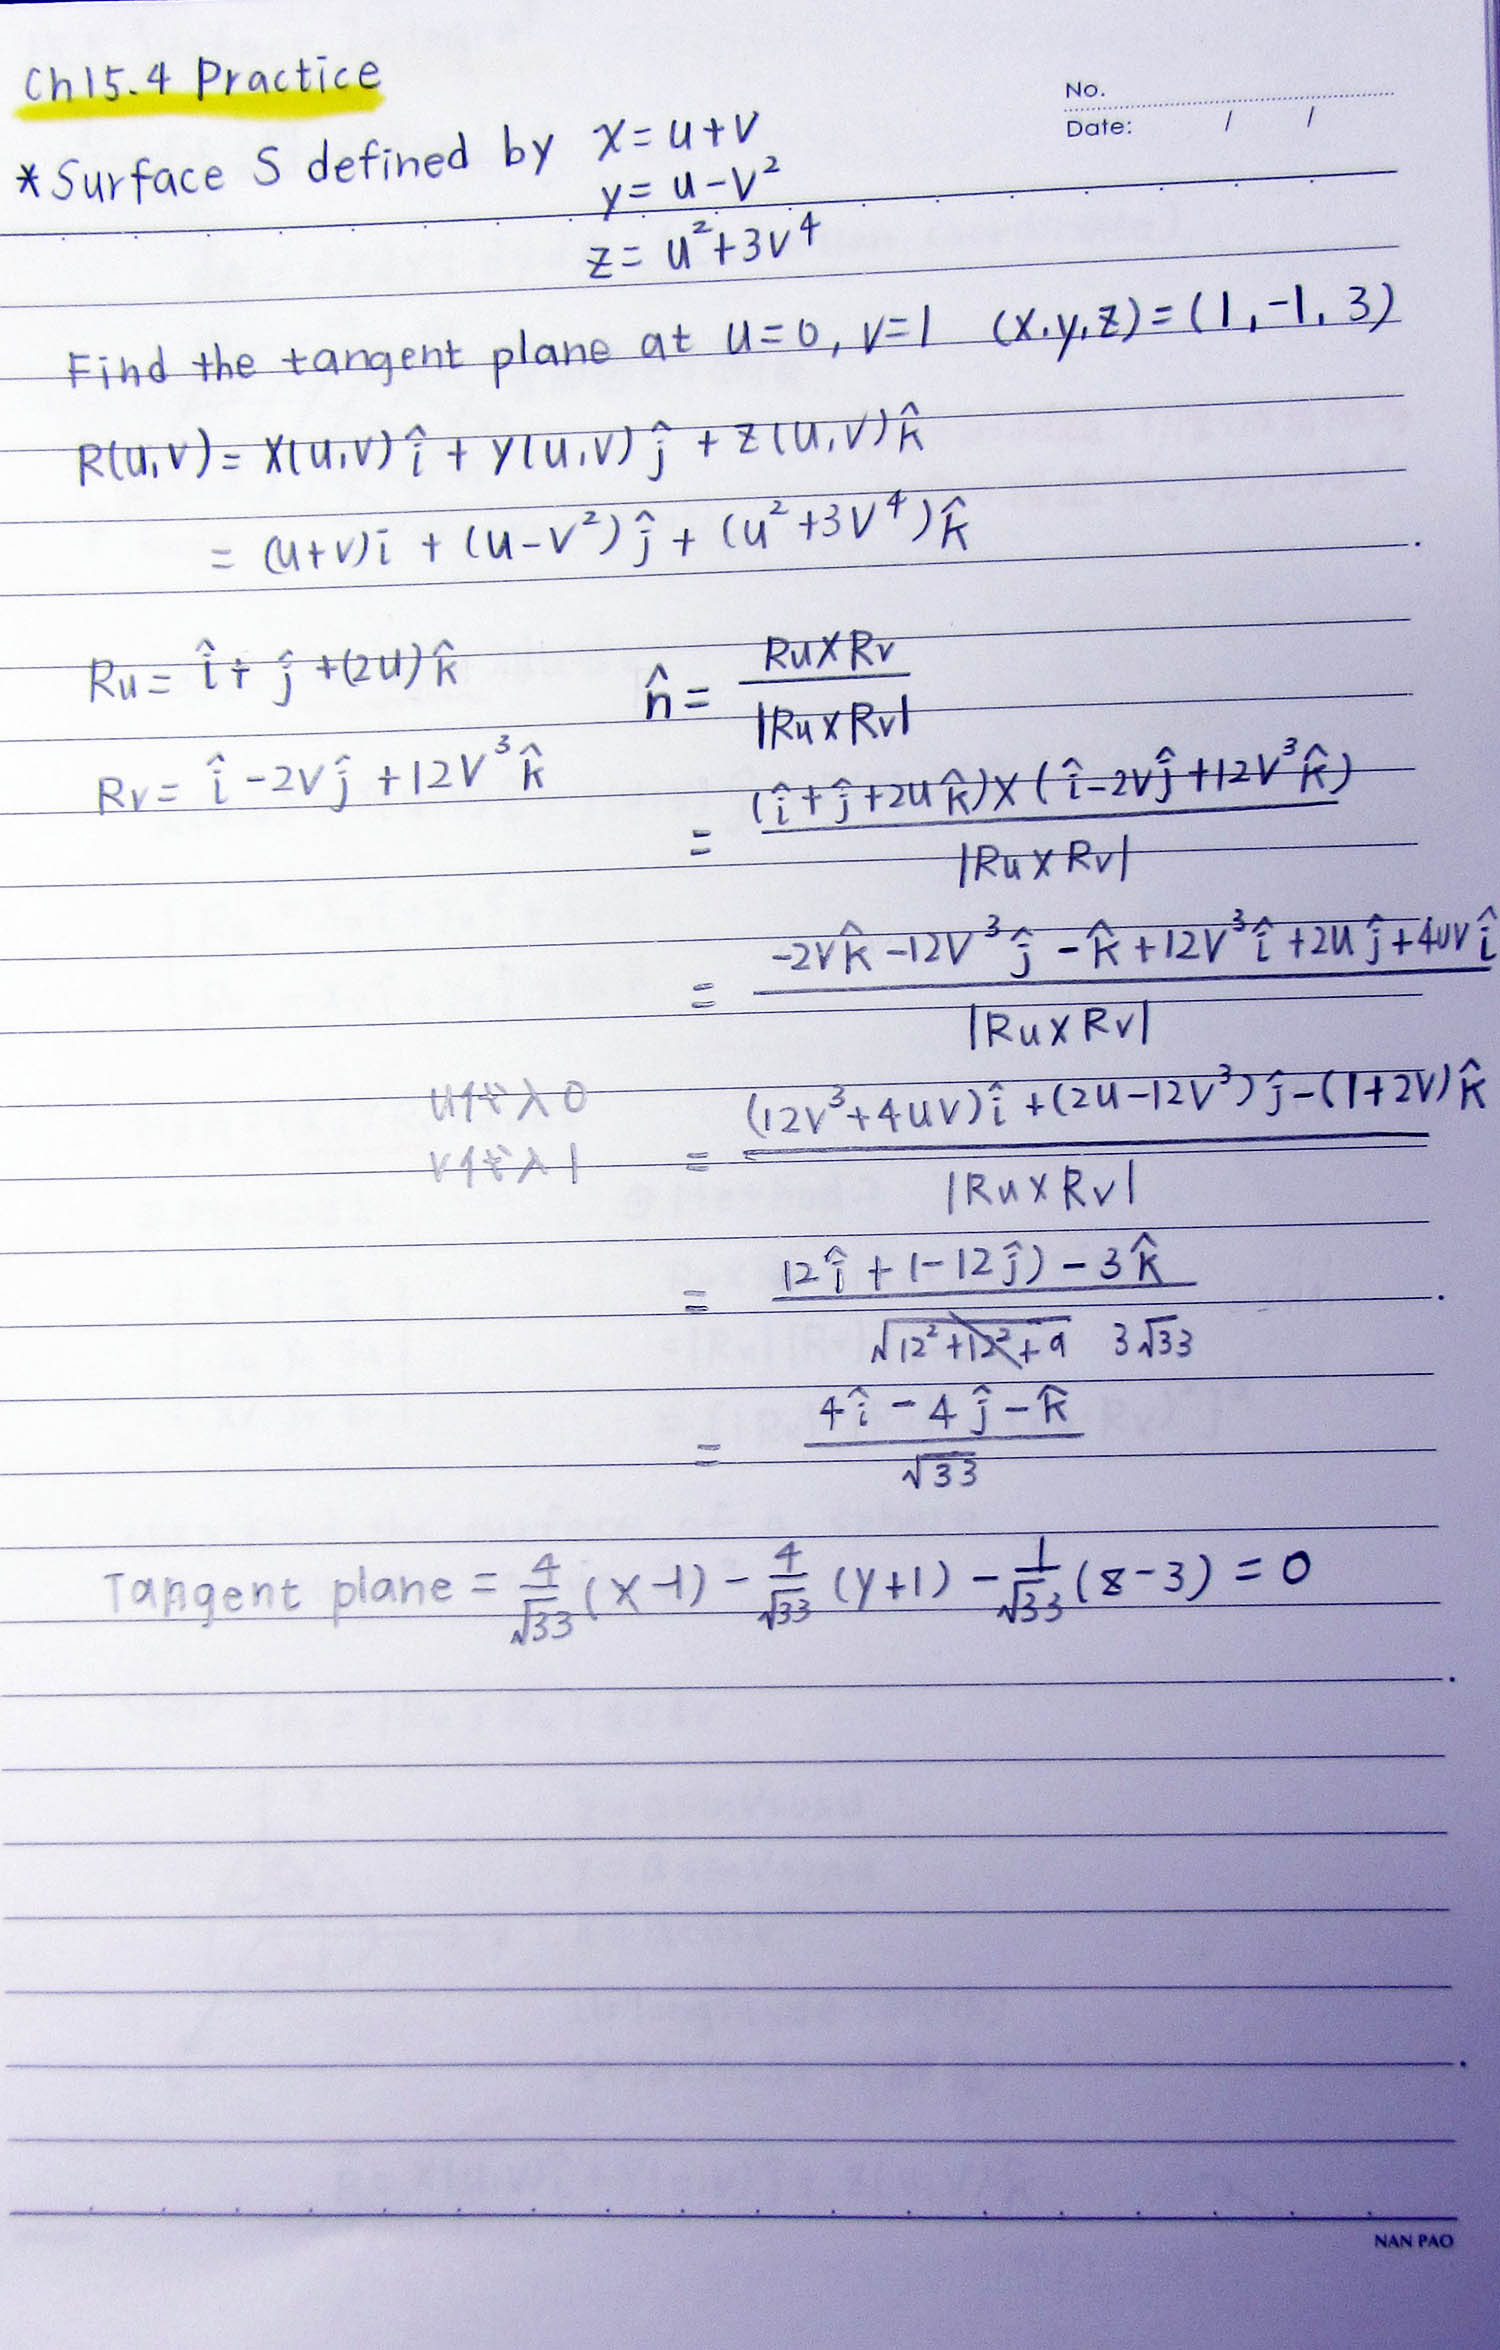 Ch15.4 Practice
No.
Date: / /
*Surface S defined by x=u+v
y=u-v²
z=u²+3v⁴
Find the tangent plane at u=0, v=1 (x,y,z)=(1,-1,3)
R(u,v)= x(u,v)î + y(u,v)ĵ + z(u,v)k̂
= (u+v)î + (u-v²)ĵ + (u²+3v⁴)k̂
Ru= î+ ĵ +(2u)k̂
n̂= Ru×Rv / |Ru×Rv|
Rv= î-2vĵ+12v³k̂
= (î+ĵ+2uk̂)×(î-2vĵ+12v³k̂) / |Ru×Rv|
= -2vk̂-12v³ĵ-k̂+12v³î+2uĵ+4uvî / |Ru×Rv|
u代入0
v代入1
= (12v³+4uv)î+(2u-12v³)ĵ-(1+2v)k̂ / |Ru×Rv|
= 12î+(-12ĵ)-3k̂ / √12²+12²+9 3√33
= 4î-4ĵ-k̂ / √33
Tangent plane = 4/√33 (x-1) - 4/√33 (y+1) - 1/√33 (z-3) = 0
NAN PAO